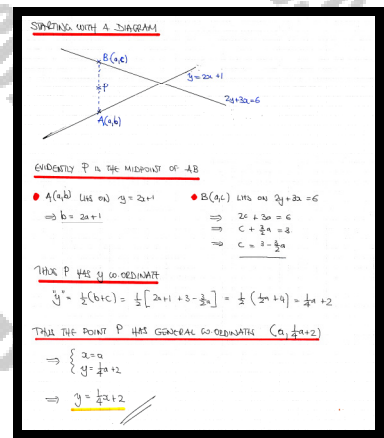 STARTING WITH A DIAGRAM
B(a,c)
y=2x+1
P
2y+3x=6
A(a,b)
EVIDENTLY P IS THE MIDPOINT OF AB
● A(a,b) LIES ON y=2x+1
⇒ b = 2a+1
● B(a,c) LIES ON 2y+3x=6
⇒ 2c + 3a = 6
⇒ c + 3/2 a = 3
⇒ c = 3 - 3/2 a
THUS P HAS y CO.ORDINATE
"y" = 1/2(b+c) = 1/2[2a+1 + 3 - 3/2 a] = 1/2(1/2 a + 4) = 1/4 a + 2
THUS THE POINT P HAS GENERAL CO.ORDINATES (a, 1/4 a+2)
⇒ { x=a
y = 1/4 a +2
⇒ y = 1/4 x + 2